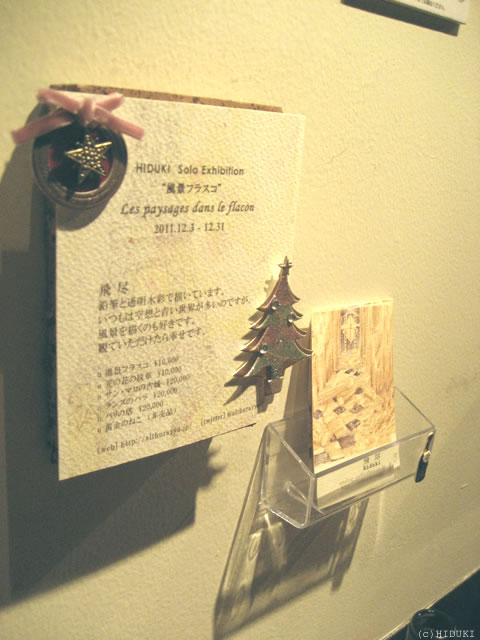 HIDUKI Solo Exhibition
"風景フラスコ"
Les paysages dans le flacon
2011.12.3 - 12.31
飛 尽
鉛筆と透明水彩で描いています。
いつもは空想と青い世界が多いのですが、
風景を描くのも好きです。
観ていただけたら幸せです。
風景フラスコ ¥10,000
¥10,000
サン・マロの古城 ¥20,000
ランスのバラ ¥20,000
パリの塔 ¥20,000
黄金のねこ (非売品)
[web] http://
[twitter]
飛 尽
hiduki
(c)HIDUKI